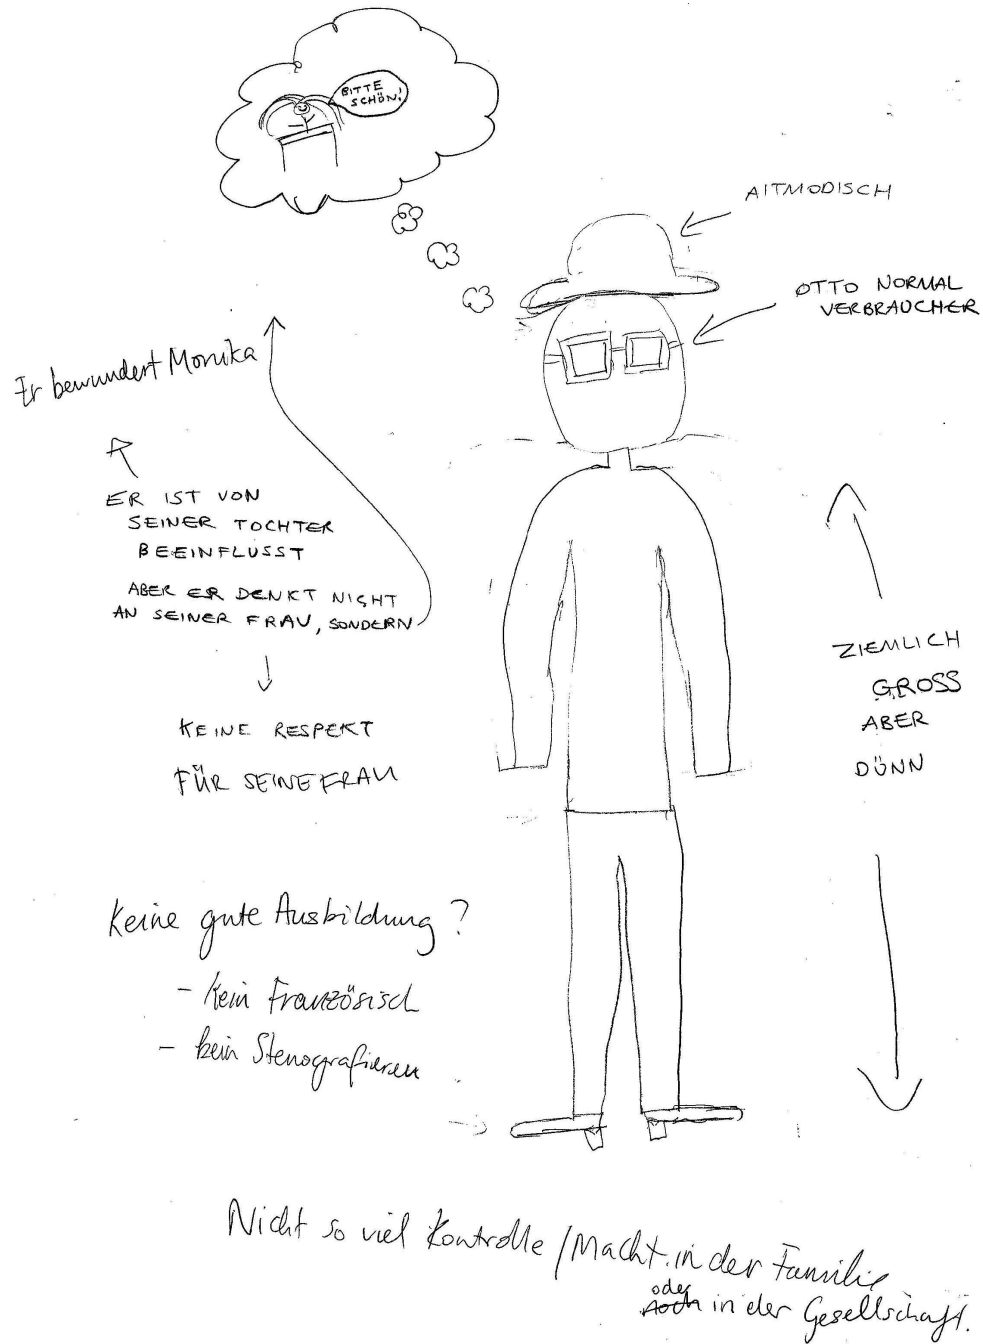 BITTE
SCHÖN!
AITMODISCH
OTTO NORMAL
VERBRAUCHER
Er bewundert Monika
ER IST VON
SEINER TOCHTER
BEEINFLUSST
ABER ER DENKT NICHT
AN SEINER FRAU, SONDERN
KEINE RESPEKT
FÜR SEINE FRAU
ZIEMLICH
GROSS
ABER
DÜNN
Keine gute Ausbildung?
- kein Französisch
- kein Stenografieren
Nicht so viel Kontrolle / Macht in der Familie
oder
noch in der Gesellschaft.